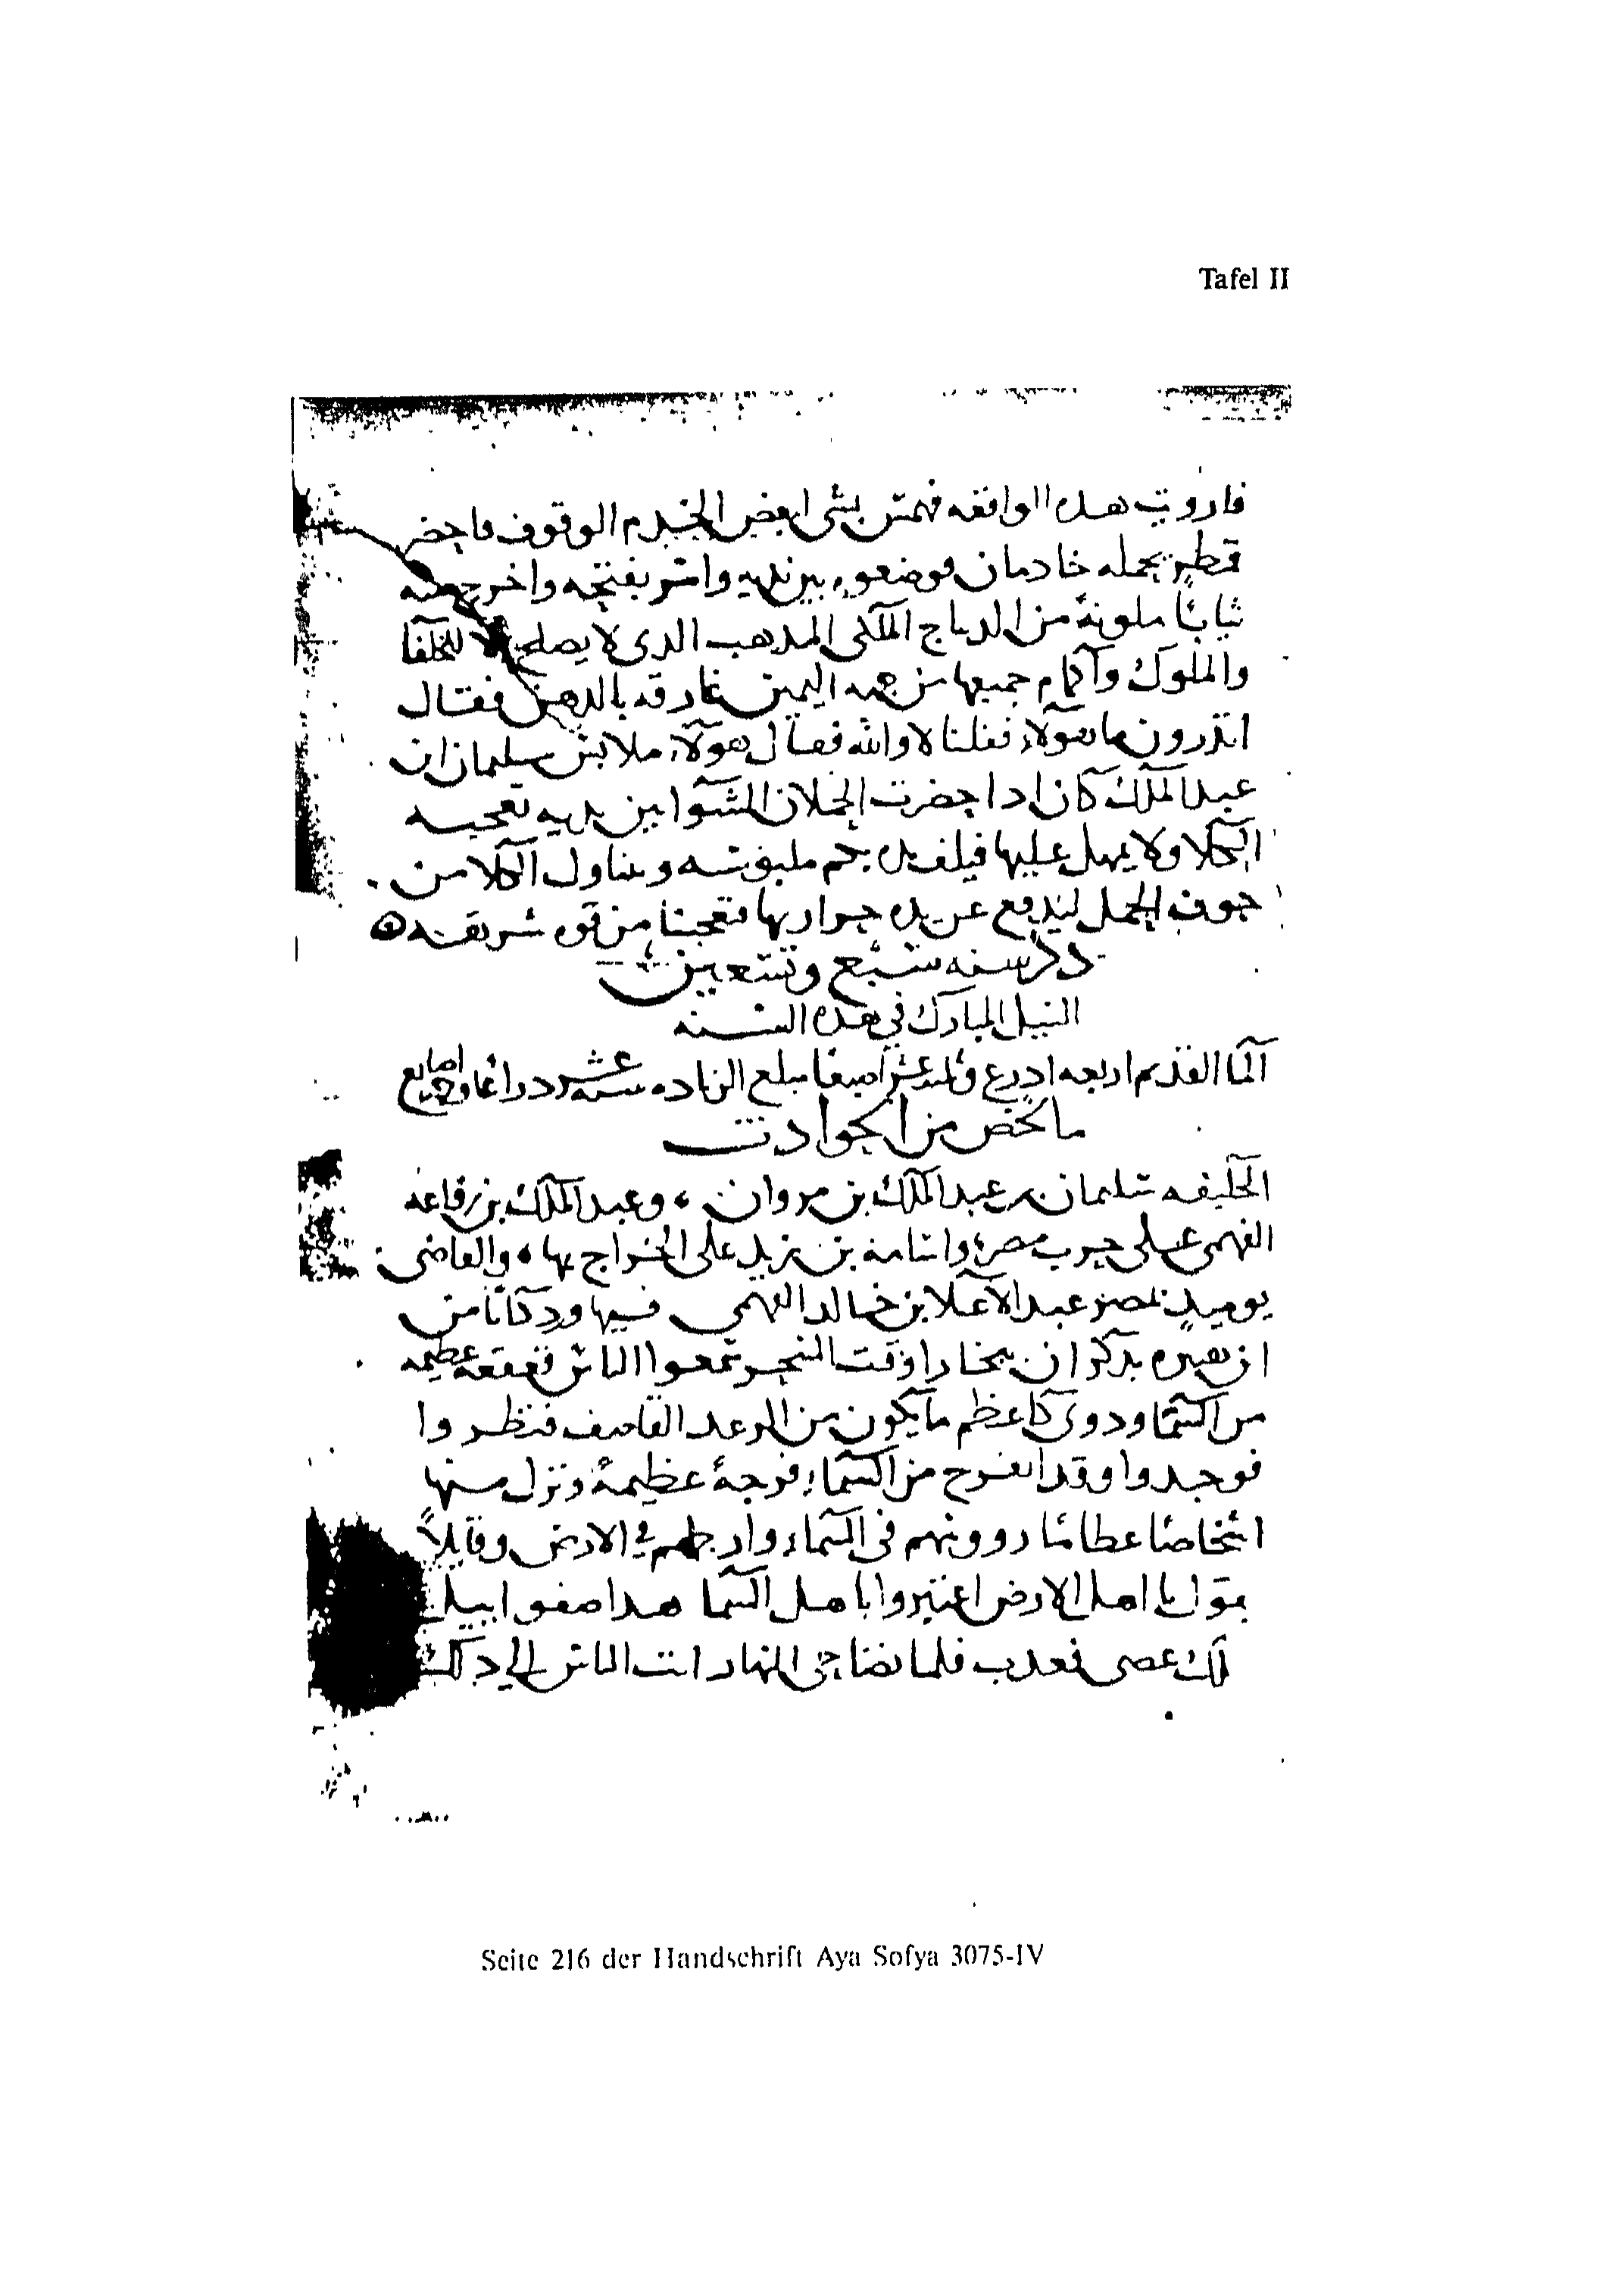 Tafel II
فارويت هده الواقعه فهمس بشى لبعض الخدم الوقوف فاحضر
قطر يحمله خادمان فوضعوه بين يديه وامر بفتحه واخرج منه
ثيابًا ملونةً من الديباج الملكى المدهب الدى لا يصلح الا للخلفا
والملوك وآكمام جميعها من جهه اليمين غارقه بالدهن فقال
اتدرون ما هولآء فقلنا لا والله فقال هولآء ملابس سليمان ابن
عبد الملك كان ادا حضرت الخملان الشوا بين يديه تعجبه
الكلا ولا يمهل عليها فيلف يده بكم ملبوسه ويتناول الكلا من
جوف الحمل ليدفع عن يده حرارتها فتعجبنا من قوه شريقته
دكر سنه سبع وتسعين
النيل المبارك في هده السنه
المآ القديم اربعه ادرع وثلثه عشر اصبعًا مبلغ الزياده سته عشر دراعًا و اصابع
ما لخص من الحوادث
الخليفه سليمان بن عبد الملك بن مروان، وعبد الملك بن رفاعه
الفهمى على حرب مصر، واسامه بن يزيد على الخراج بها، والقاضى
يوميدٍ بمصر عبد الآعلا بن خالد الفهمى فيها ورد كتابًا من
ابن هبيره يدكر ان ببخارا وقت الفجر سمعوا الناس قعقعه عظيمه
من السمآ ودوى كاعظم ما يكون من الرعد القاصف فنظروا
فوجدوا وقد انفرج من السماء فرجةً عظيمةً ونزل منها
اشخاصًا عظامًا رووسهم فى السماء وارجلهم في الارض وقايلاً
يقول يا اهل الارض اعتبروا باهل السما هدا صفوابيل
ملك عصى فعدب فلما اضاحى النهار اتت الناس الى دلك
Seite 216 der Handschrift Aya Sofya 3075-IV